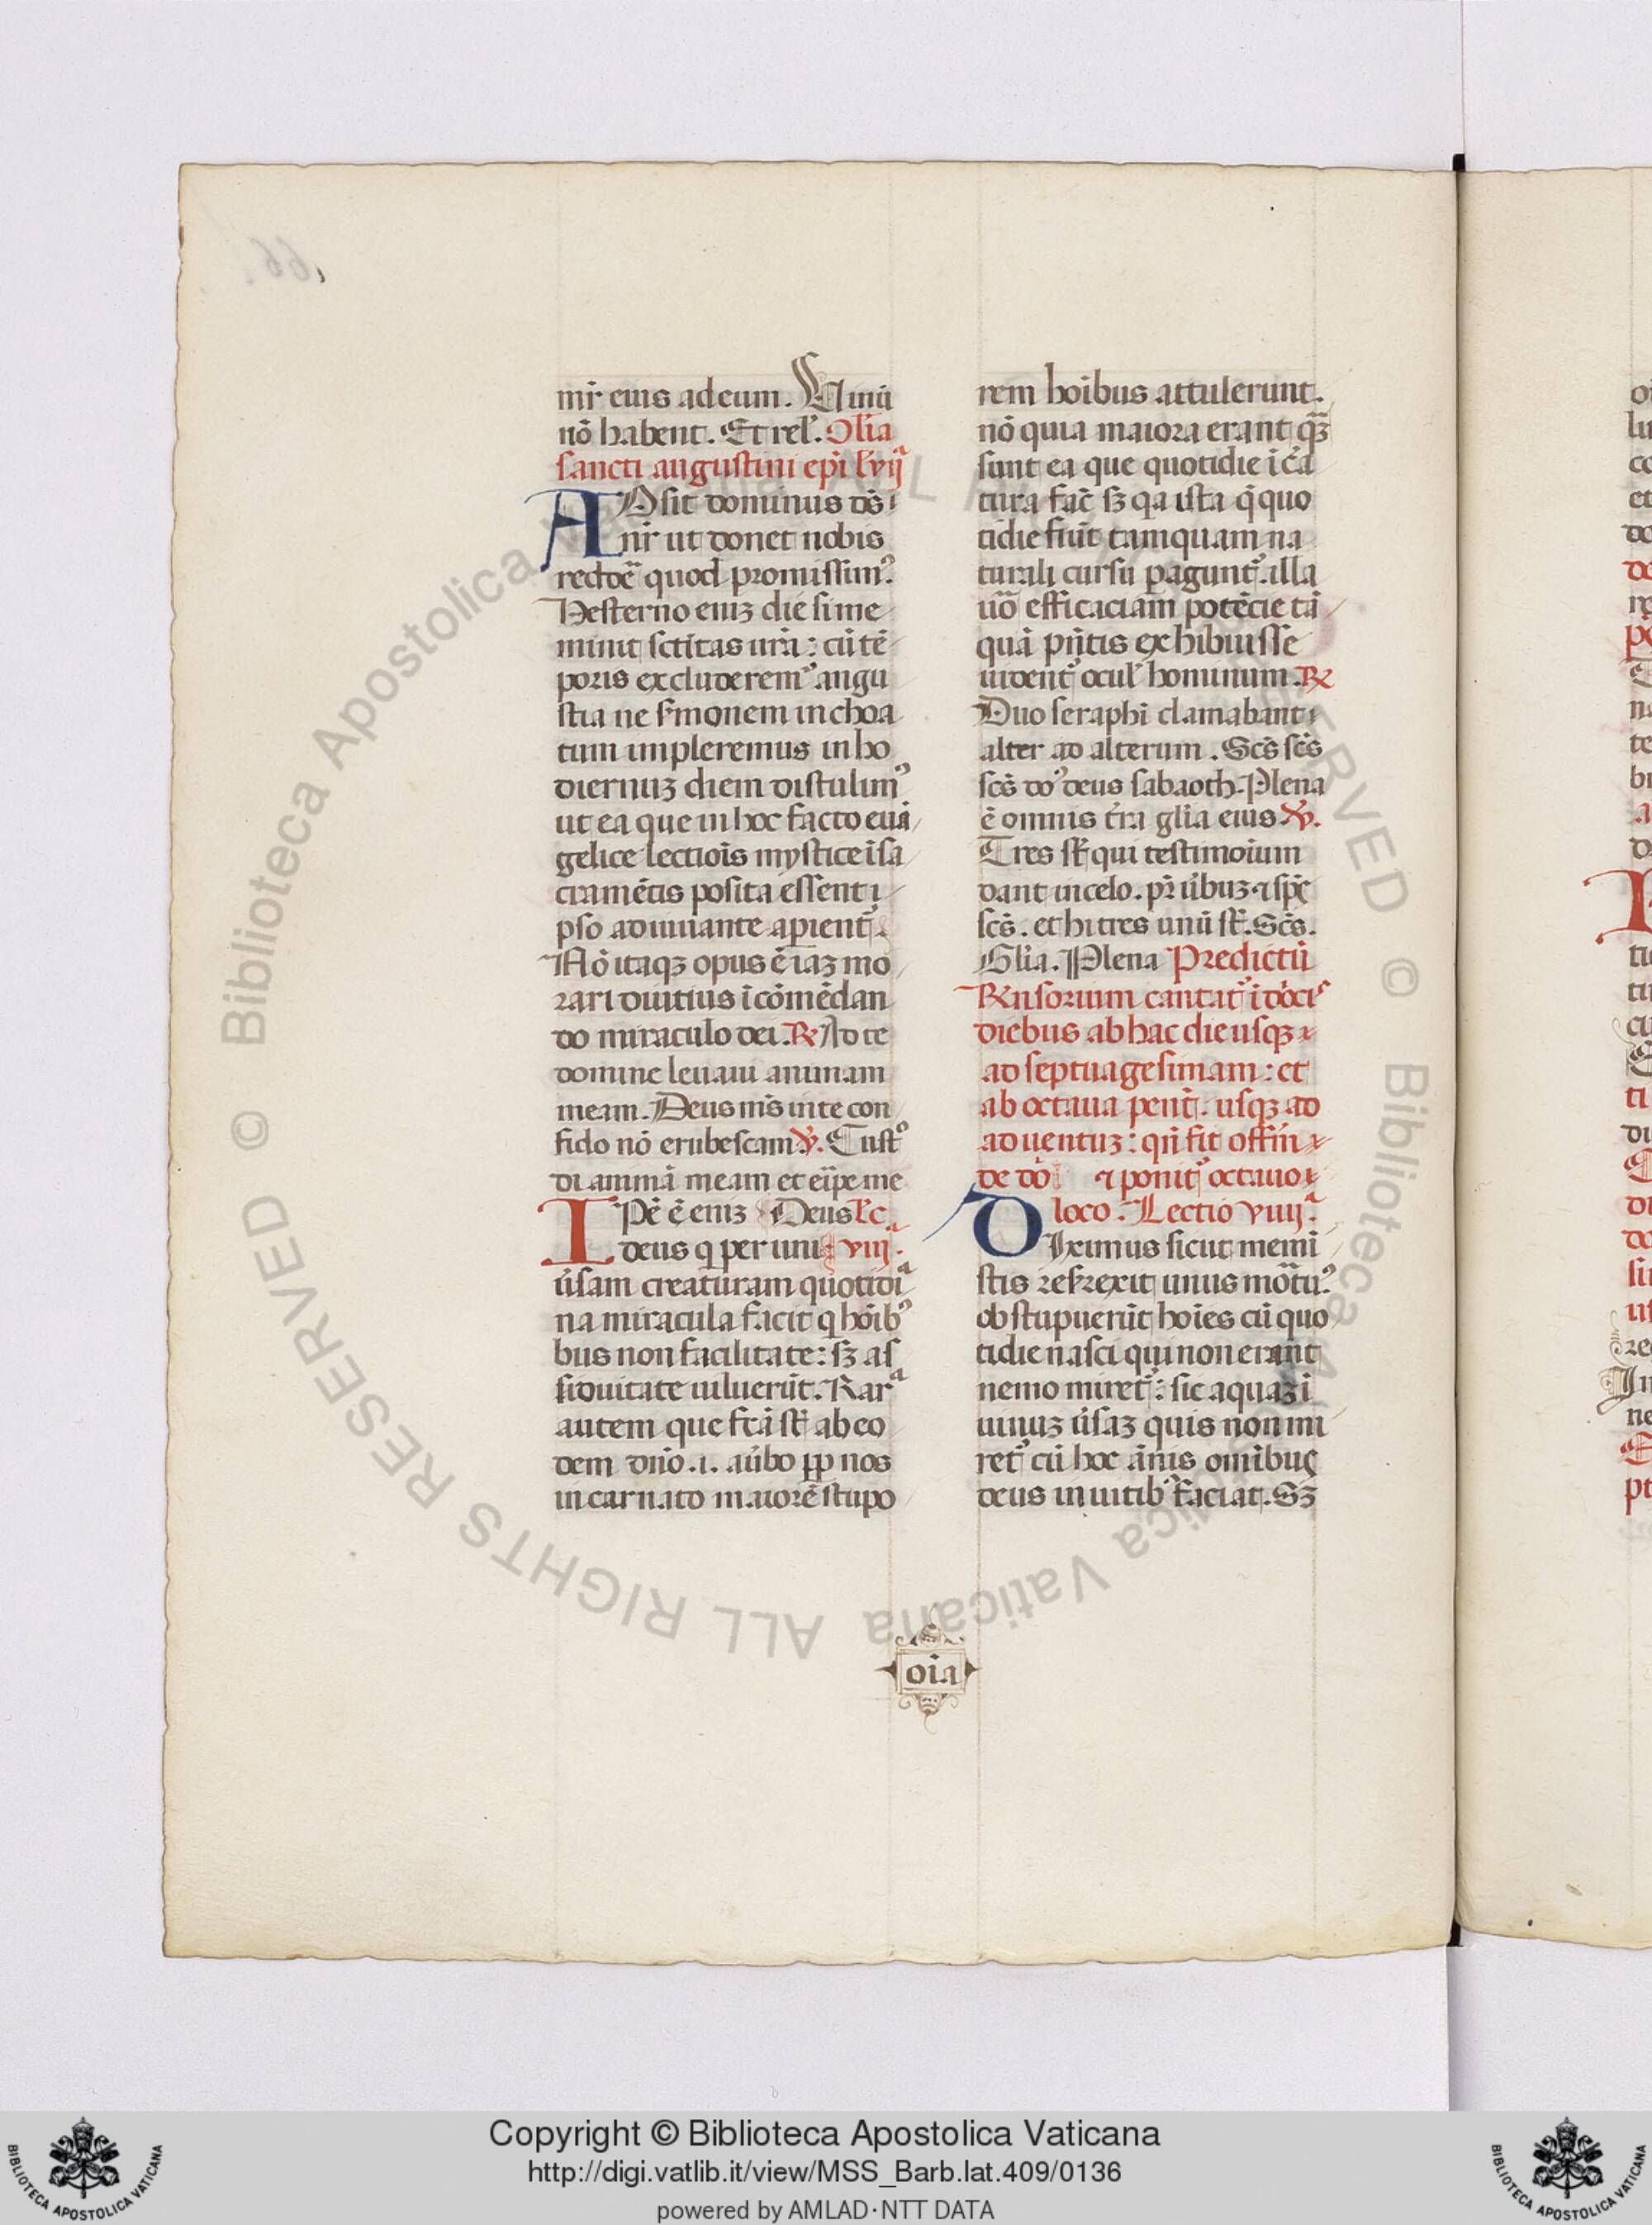 mr̄ eius ad eum. Uinū
nō habent. Et rel̄. Olīa
sancti augustini ep̄i l̄ vijª
ADsit dominus dō̄s
nr̄ ut donet nobis
reddē quod promissim⁹.
Hesterno eniz die si me
minit sctītas ur̄a: cū tē
poris excluderem⁹ angu
stia ne s̄monem inchoa
tum impleremus in ho
diernuz diem distulim⁹
ut ea que in hoc facto euā
gelice lectiōis mystice ī sa
cramētis posita essent i
pso adiuuante apient᷑.
Nō itaqz opus ē iaz mo
rari diutius ī cōmēdan
do miraculo dei. ℟ Ad te
domine leuaui animam
meam. Deus ms̄ in te con
fido nō erubescam ℣. Cust⁰
di animā meam et eīpe me
IPē ē eniz Deus lc̄
deus q per uni viijª.
ūsam creaturam quotidiª
na miracula facit q hoīb⁹
bus non facilitate: sz as
siduitate uiluerūt. Rarª
autem que fctā st̄ ab eo
dem dn̄o .i. aūbo pp nos
incarnato maiorē stupo
rem hoībus attulerunt.
nō quia maiora erant qz̄
sunt ea que quotidie ī c̄a
tura fac̄ sz qa ista q̄ quo
tidie fiūt tamquam na
turali cursu pagunt᷑. illa
uō efficaciam potēcie tā
quā pn̄tis exhibuisse
uident᷑ ocul̄ hominum. ℟
Duo seraphi clamabant
alter ad alterum. Scs̄ scs̄
scs̄ do⁹ deus sabaoth. Plena
ē omnis t̄ra gl̄ia eius ℣.
Tres st̄ qui testimoīum
dant in celo. pr̄ ūbuz ⁊ sp̄c̄
scs̄. et hi tres unū st̄. Scs̄.
Gl̄ia. Plena Predictū
Rn̄sorium cantat᷑ ī dōcis
diebus ab hac die usqz
ad septuagesimam: et
ab octaua pent̄. usqz ad
aduentuz: qn̄ fit offm̄
de dō ⁊ ponit᷑ octauo
loco. Lectio viiijª.
DIximus sicut memī
stis resrexit unus mortu⁹.
obstupuerūt hoīes cū quo
tidie nasci qui non erant
nemo miret᷑: sic aquaz ī
uinuz ūsaz quis non mi
ret᷑ cū hoc ānis omībus
deus in uitib⁹ faciat. Sz
oīa
Copyright © Biblioteca Apostolica Vaticana
http://digi.vatlib.it/view/MSS_Barb.lat.409/0136
powered by AMLAD·NTT DATA
© Biblioteca Apostolica Vaticana ALL RIGHTS RESERVED
BIBLIOTECA APOSTOLICA VATICANA
BIBLIOTECA APOSTOLICA VATICANA